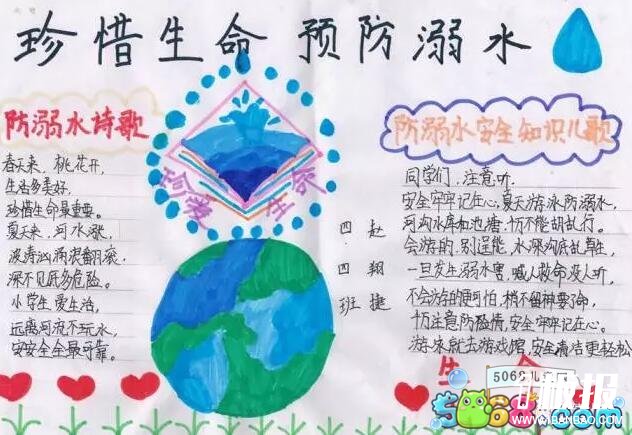 珍惜生命 预防溺水
防溺水诗歌
春天来，桃花开，
生活多美好，
珍惜生命最重要。
夏天来，河水涨，
波涛汹涌浪翻滚，
深不见底多危险。
小学生爱生活，
远离河流不玩水，
安安全全最可靠。
珍爱生命
四四班
赵翔捷
防溺水安全知识儿歌
同学们，注意听，
安全牢牢记在心，夏天游泳防溺水，
河沟水库和池塘，千万不能胡乱行。
会游的，别逞能，水深沟底乱草生，
一旦发生溺水害，喊人救命没人听，
不会游的更怕，稍不留神要河命，
千万注意防险情，安全牢牢记在心。
游泳就去游戏馆，安全清洁更轻松
5068儿
板报
www.1BANBAO.com
5068.com